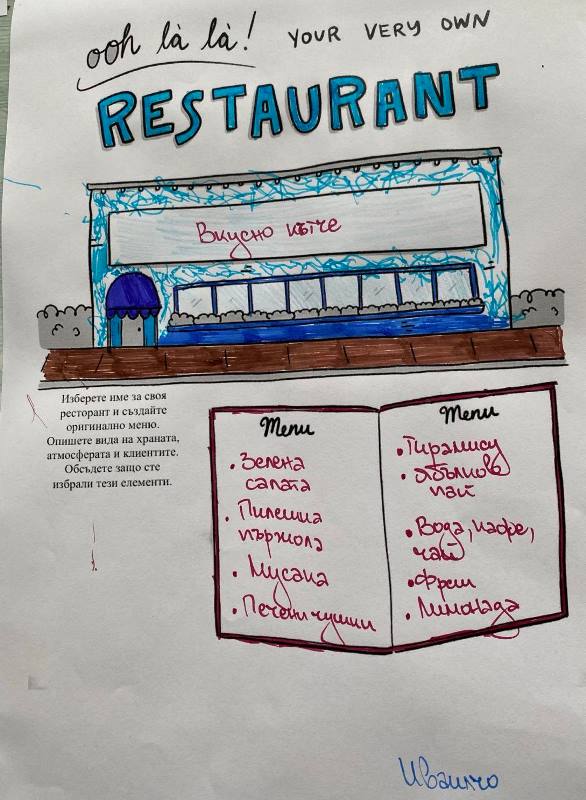 ooh là là! YOUR VERY OWN
RESTAURANT
Вкусно кътче
Изберете име за своя
ресторант и създайте
оригинално меню.
Опишете вида на храната,
атмосферата и клиентите.
Обсъдете защо сте
избрали тези елементи.
Menu
• Зелена
салата
• Пилешка
пържола
• Мусака
• Печени чушки
Menu
• Тирамису
• Ябълков
пай
• Вода, кафе,
чай
• Фреш
• Лимонада
Ивайло